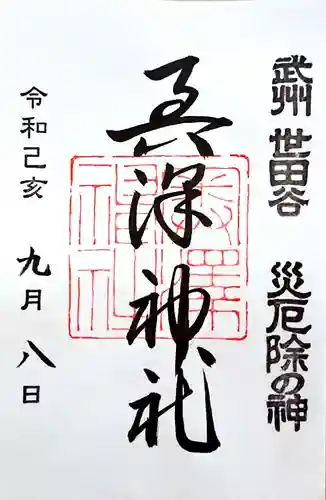 武州 世田谷 災厄除の神
奥澤神社
令和己亥 九月 八日